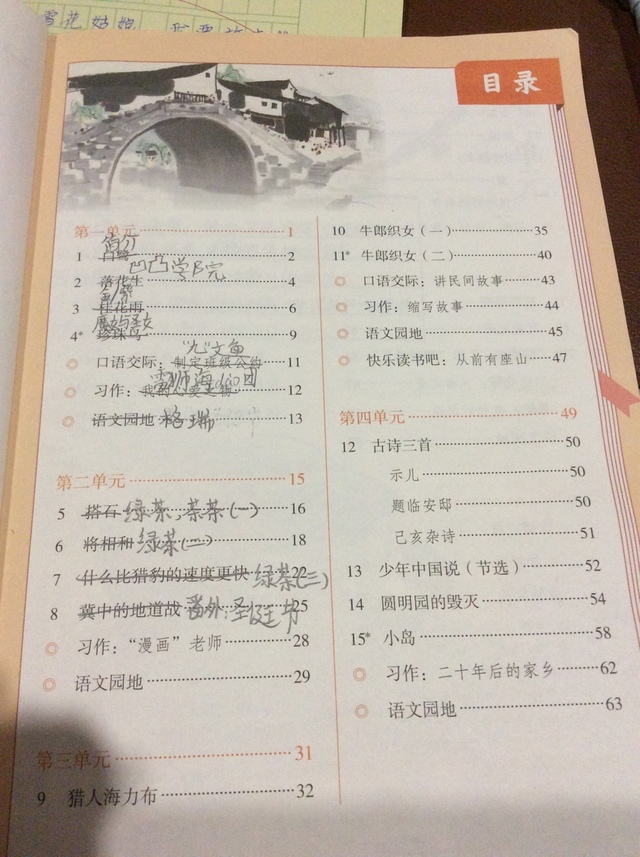 雪花姑娘
目录
第一单元 1
简介
1 白鹭 2
凹凸学院
2 落花生 4
3 桂花雨 6
魔女与圣女
4* 珍珠鸟 9
“九”文鱼
口语交际：制定班级公约 11
雷狮海盗团
习作：我的心爱之物 12
语文园地 格瑞 13
第二单元 15
5 搭石 绿茶，茶茶（一） 16
6 将相和 绿茶（二） 18
7 什么比猎豹的速度更快 22 绿茶（三）
8 冀中的地道战 番外：圣廷书 25
习作：“漫画”老师 28
语文园地 29
第三单元 31
9 猎人海力布 32
10 牛郎织女（一） 35
11* 牛郎织女（二） 40
口语交际：讲民间故事 43
习作：缩写故事 44
语文园地 45
快乐读书吧：从前有座山 47
第四单元 49
12 古诗三首 50
示儿 50
题临安邸 50
己亥杂诗 51
13 少年中国说（节选） 52
14 圆明园的毁灭 54
15* 小岛 58
习作：二十年后的家乡 62
语文园地 63